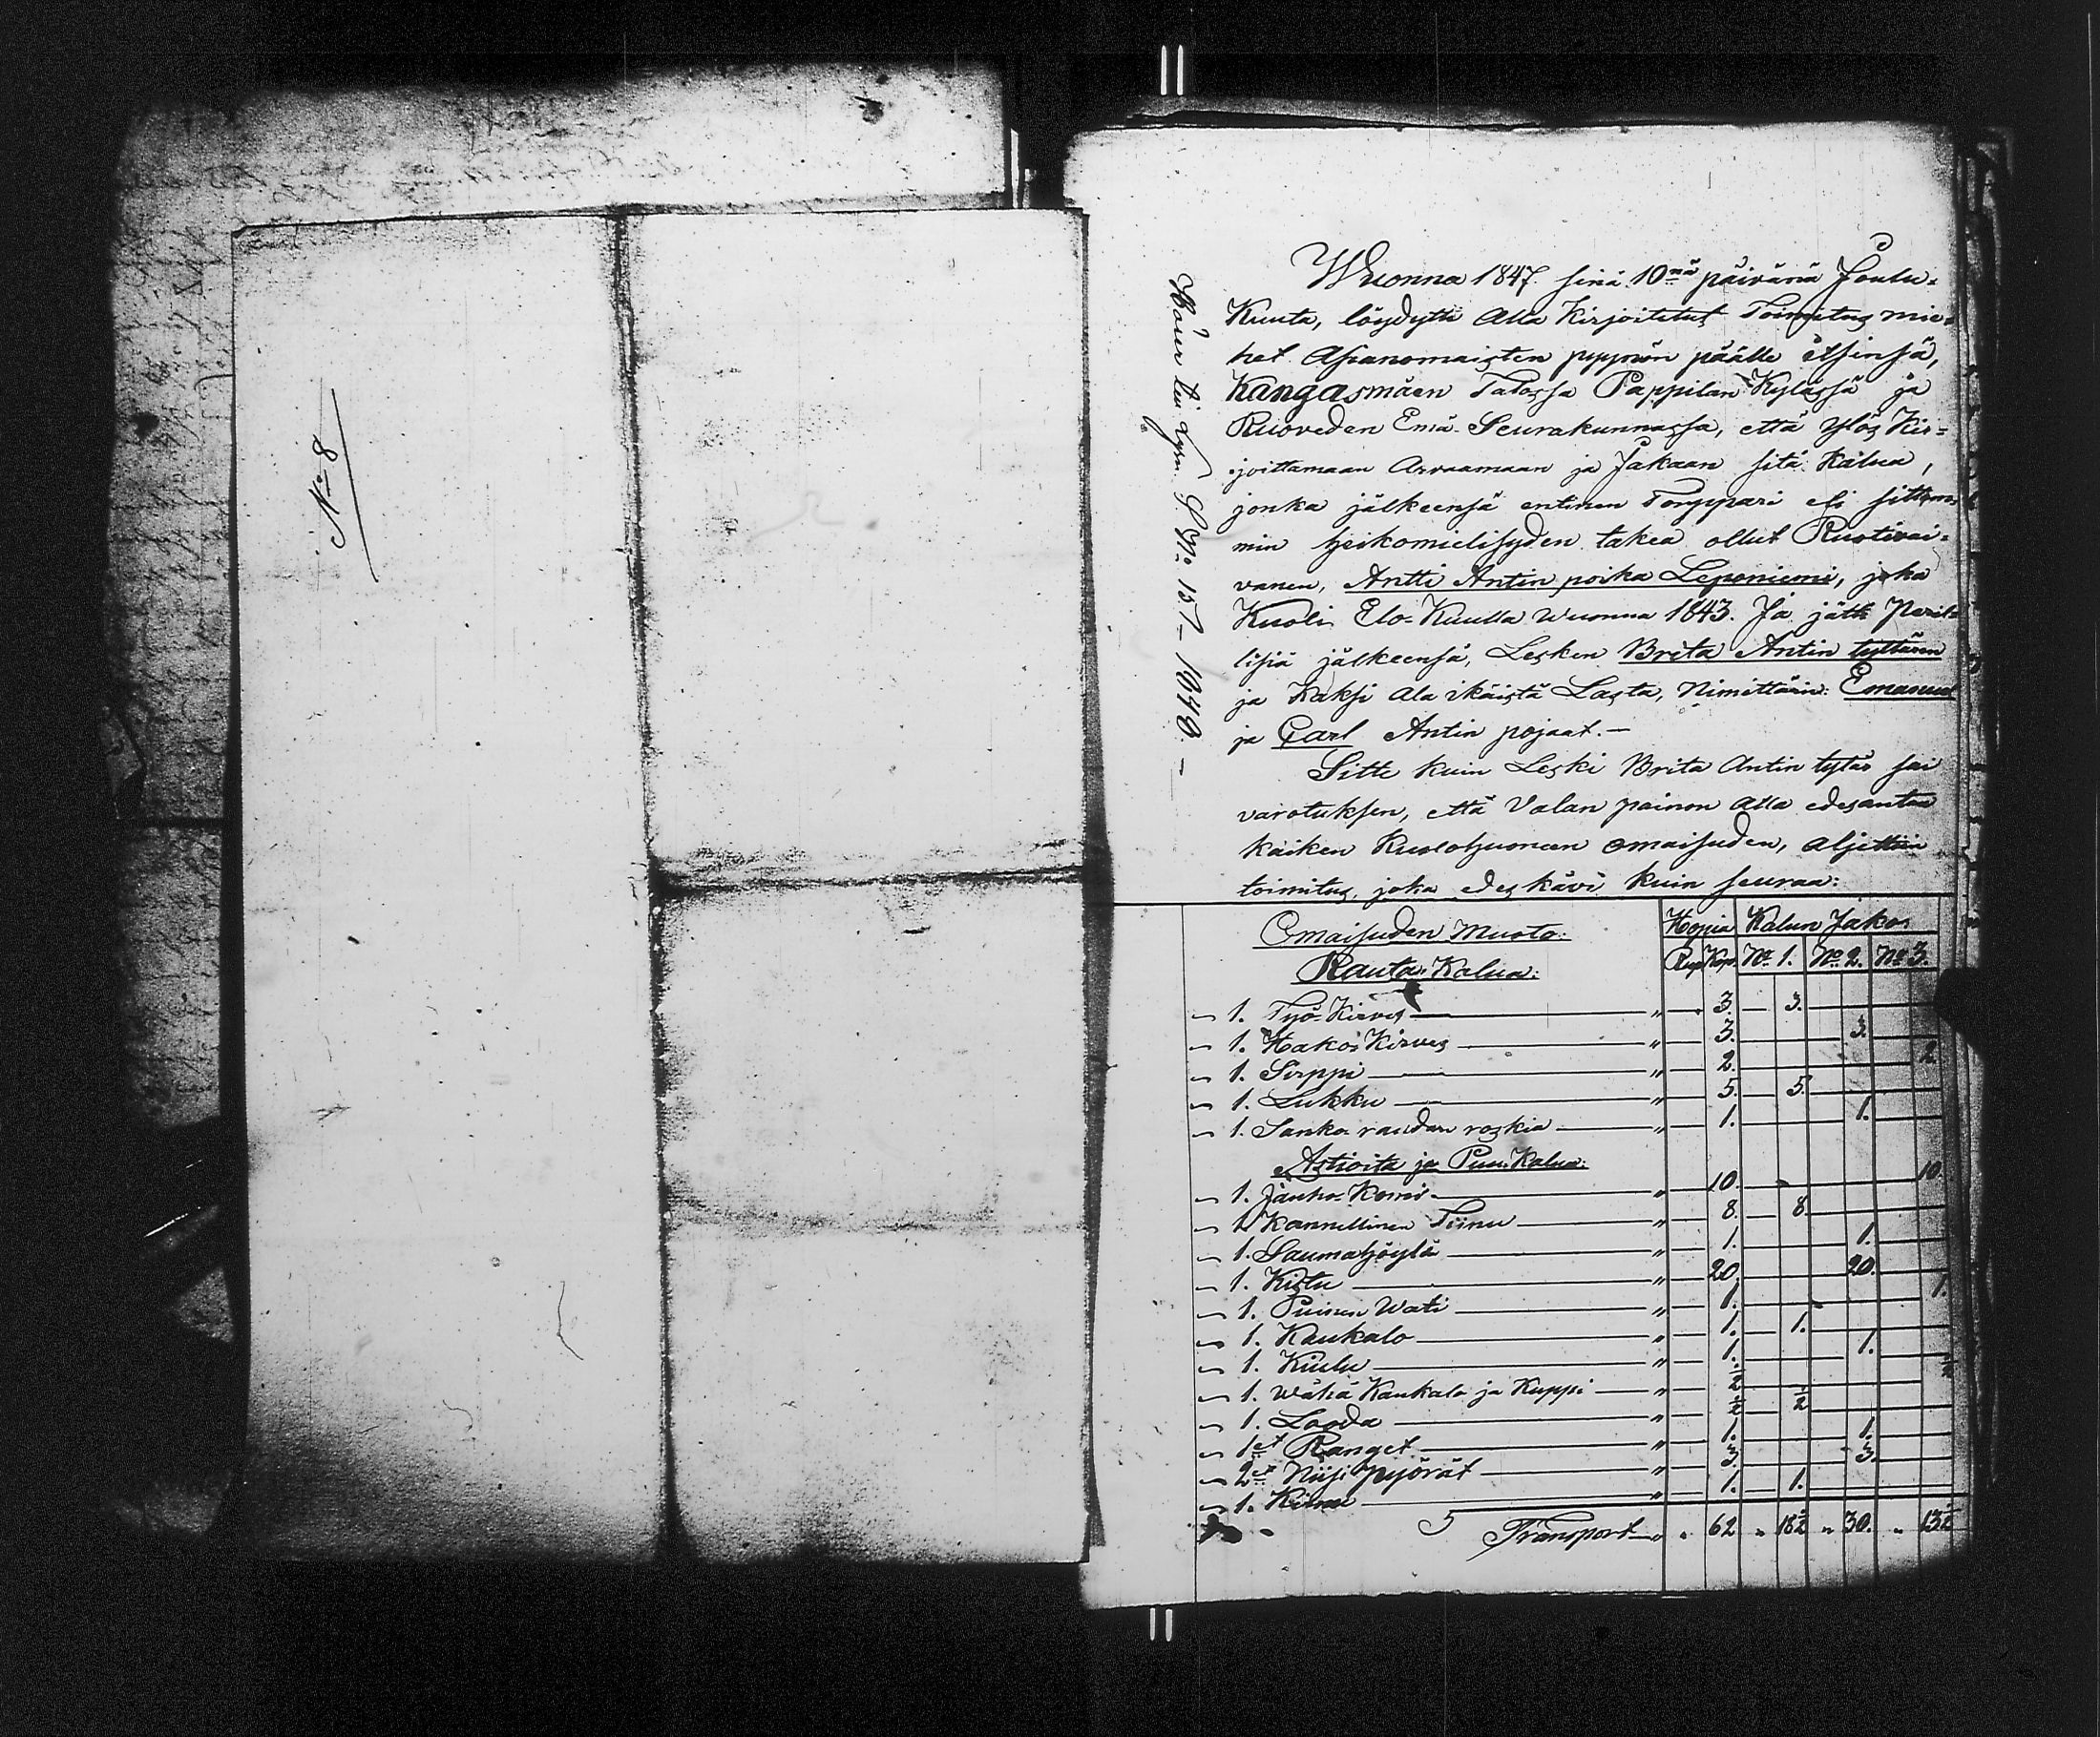 No 8
Hörer till Lysn. S. No 157 1848. –
Wuonna 1847. sinä 10nä päivänä Joulu-
Kuuta, löydytti Alla Kirjoitetut Toimitus mie-
het Asianomaisten pyynön päälle itsinsä,
Kangasmäen Talossa Pappilan Kylässä ja
Ruoveden Emä-Seurakunnassa, että Ylös Kir=
joittamaan Arvaamaan ja Jakaan sitä Kalua,
jonka jälkeensä entinen Torppari eli sittem-
min heikomielisyden takea ollut Ruotivai=
vanen, Antti Antin poika Leponiemi, joka
Kuoli Elo-Kuulla Wuonna 1843. Ja jätti Peril=
lisiä jälkeensä, Lesken Brita Antin tyttären
ja Kaksi Ala ikäistä Lasta, Nimittäin: Emanuel
ja Carl Antin pojaat. –
Sitte kuin Leski Brita Antin tytär sai
varotuksen, että Valan painon alla edesantaa
kaiken Kuolohuoneen omaisuden, aljettiin
toimitus, joka edeskävi kuin seuraa:
Omaisuden Muoto: Hopia Kalun Jako.
Rauta-Kalua: Rup Kop. No 1. No 2. No 3.
1. Työ-Kirves " 3. 3.
1. Hako-Kirves " 3. 3.
1. Sirppi " 2. 2.
1. Lukku " 5. 5.
1. Sanko raudan roskia " 1. 1.
Astioita ja Puu-Kalua:
1. Jauho-Konni " 10. 10.
1. Kannellinen Tiinu " 8. 8.
1. Saumahöylä " 1. 1.
1. Kistu " 20. 20.
1. Puinen Wati " 1. 1.
1. Kaukalo " 1. 1.
1. Kiulu " 1. 1.
1. Wähä Kaukalo ja Kuppi " 1/2 1/2
1. Looda " 1/2 1/2
1et Ranget " 1. 1.
2et Niisi Pyörät " 3. 3.
1. Kirnu " 1. 1.
Transport " 62 " 18 1/2 " 30. " 13 1/2